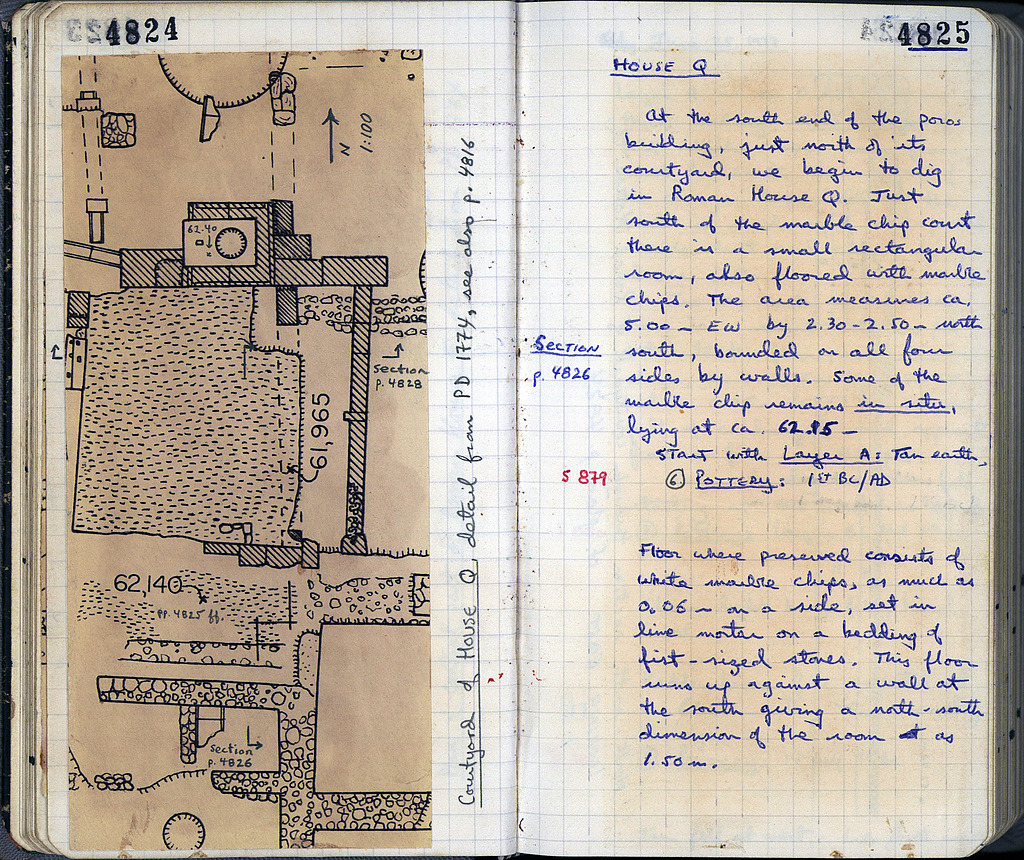 4824
N
1:100
62.40
Section
p. 4828
61,965
62,140
pp. 4825 ff.
Section
p. 4826
Courtyard of HOUSE Q, detail from PD 1774, see also p. 4816
4825
HOUSE Q
At the south end of the poros
building, just north of its
courtyard, we begin to dig
in Roman House Q. Just
south of the marble chip court
there is a small rectangular
room, also floored with marble
chips. The area measures ca.
5.00 m EW by 2.30-2.50 m north
south, bounded on all four
sides by walls. Some of the
marble chip remains in situ,
lying at ca. 62.15 m
Start with Layer A: Tan earth,
⑥ POTTERY: 1st BC/AD
SECTION
p. 4826
S 879
Floor where preserved consists of
white marble chips, as much as
0.06 m on a side, set in
lime mortar on a bedding of
fist-sized stones. This floor
runs up against a wall at
the south giving a north-south
dimension of the room as
1.50 m.